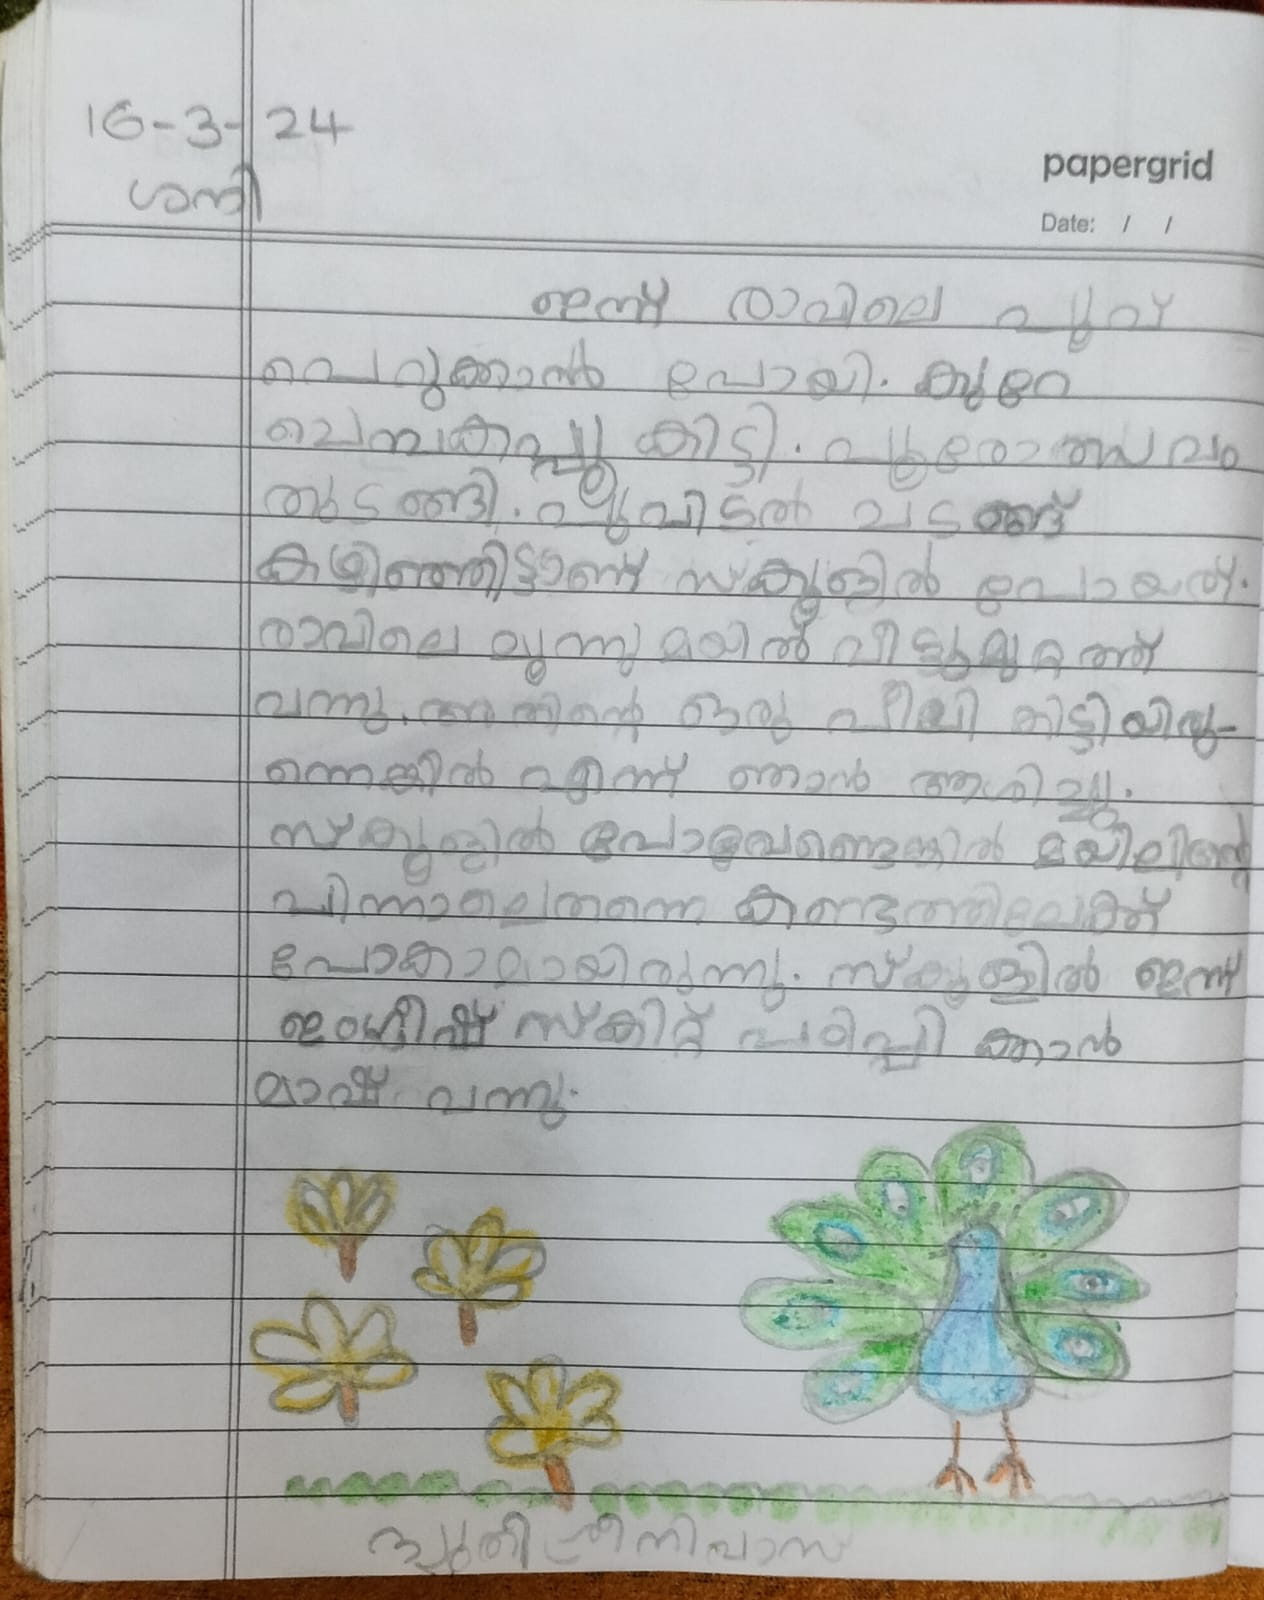 16-3-24
ശനി
papergrid
Date: / /
ഇന്ന് രാവിലെ പൂവ്
പെറുക്കാൻ പോയി. കുറേ
ചെമ്പകപ്പൂ കിട്ടി. പൂരോത്സവം
തുടങ്ങി. പൂവിടൽ ചടങ്ങ്
കഴിഞ്ഞിട്ടാണ് സ്കൂളിൽ പോയത്.
രാവിലെ മൂന്നു മയിൽ വീട്ടുമുറ്റത്ത്
വന്നു. അതിന്റെ ഒരു പീലി കിട്ടിയിരു-
ന്നെങ്കിൽ എന്ന് ഞാൻ ആശിച്ചു.
സ്കൂളിൽ പോവേണ്ടെങ്കിൽ മയിലിന്റെ
പിന്നാലെതന്നെ കണ്ടത്തിലേക്ക്
പോകാമായിരുന്നു. സ്കൂളിൽ ഇന്ന്
ഇംഗ്ലീഷ് സ്കിറ്റ് പഠിപ്പിക്കാൻ
മാഷ് വന്നു.
ശ്രീനിവാസ്